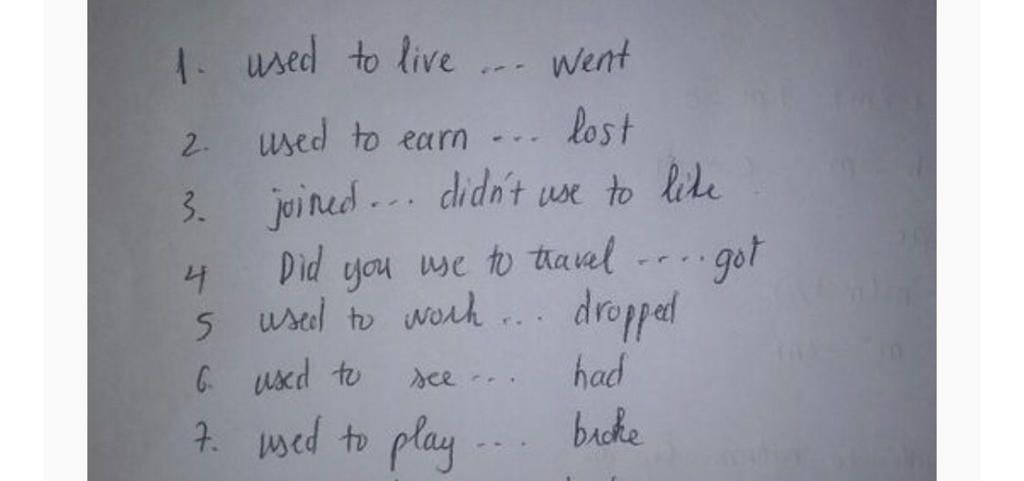 1. used to live ... went
2. used to earn ... lost
3. joined ... didn't use to like
4 Did you use to travel .... got
5 used to work ... dropped
6. used to see ... had
7. used to play .... broke